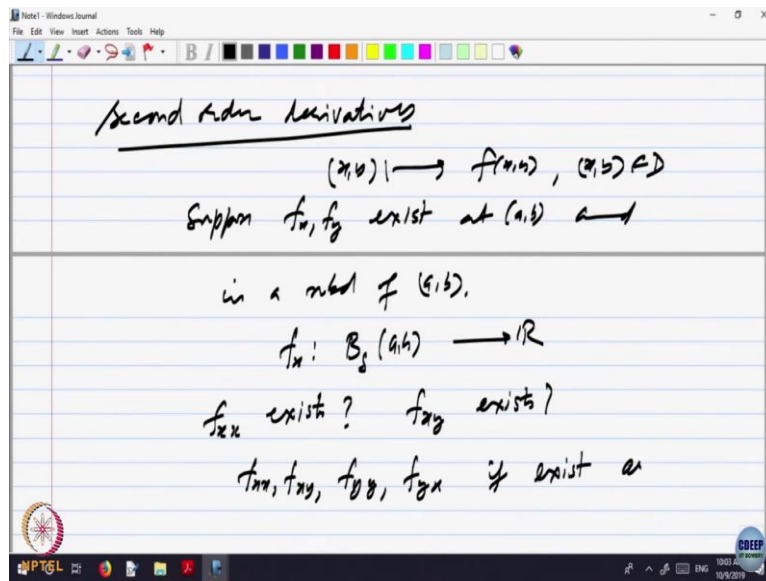 Note1 - Windows Journal
File Edit View Insert Actions Tools Help
B I
Second order derivatives
(x,y) ⟼ f(x,y), (x,y) ∈ D
Suppose fx, fy exist at (a,b) and
in a nbd of (a,b).
fx : Bδ(a,b) ⟶ ℝ
fxx exist? fxy exists?
fxx, fxy, fyy, fyx if exist as
NPTEL
CDEEP
IIT BOMBAY
ENG
10:03 A
10/9/2019